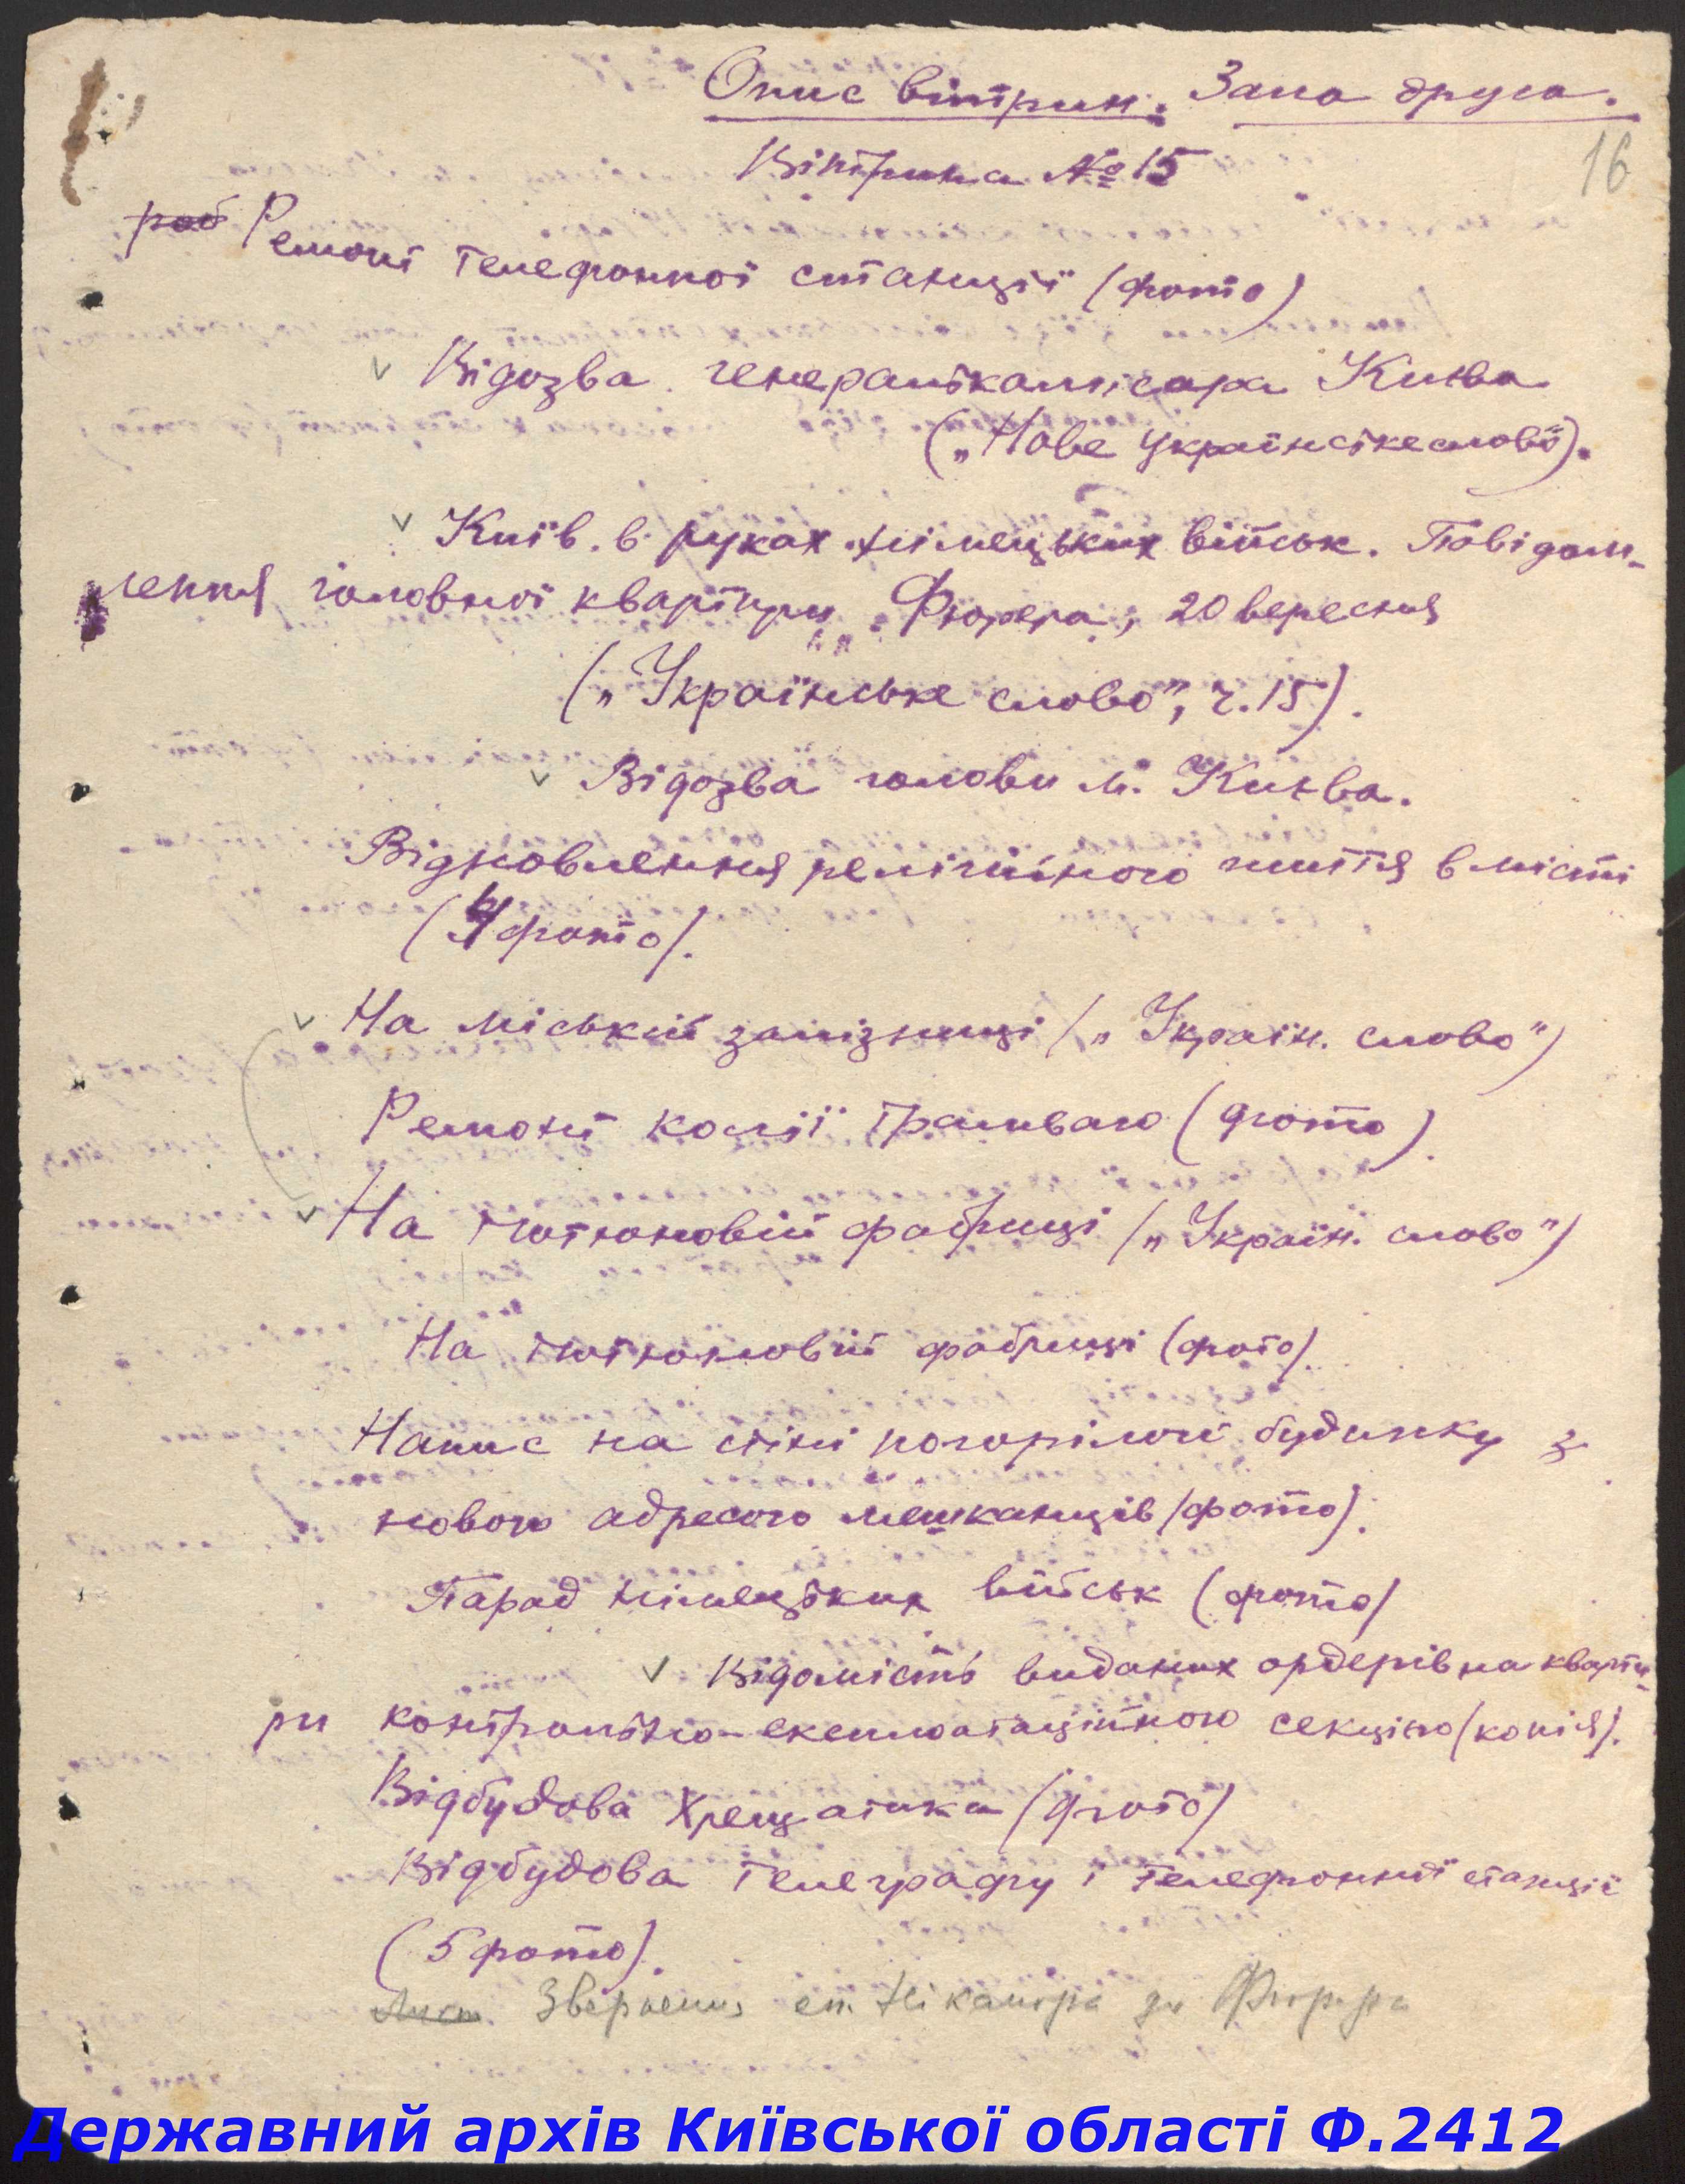 Опис вітрин. Зала друга.
16
Вітрина № 15
роб Ремонт телефонної станції (фото)
v Відозва генералькомісара Києва
(„Нове українське слово“).
v Київ в руках німецьких військ. Повідом-
лення головної квартири Фюрера, 20 вересня
(„Українське слово”, ч. 15).
v Відозва голови м. Києва.
Відновлення релігійного життя в місті
(4 фото).
v На міській залізниці („Україн. слово”)
Ремонт колії трамваю (фото).
v На тютюновій фабриці („Україн. слово”)
На тютюновій фабриці (фото).
Напис на стіні погорілого будинку з
новою адресою мешканців (фото).
Парад німецьких військ (фото)
v Відомість виданих ордерів на кварти-
ри контрольно-експлоатаційною секцією (копія).
Відбудова Хрещатика (фото)
Відбудова телеграфу і телефонної станції
(5 фото).
Лист Звернення еп. Ніканора до Фюрера
Державний архів Київської області Ф.2412